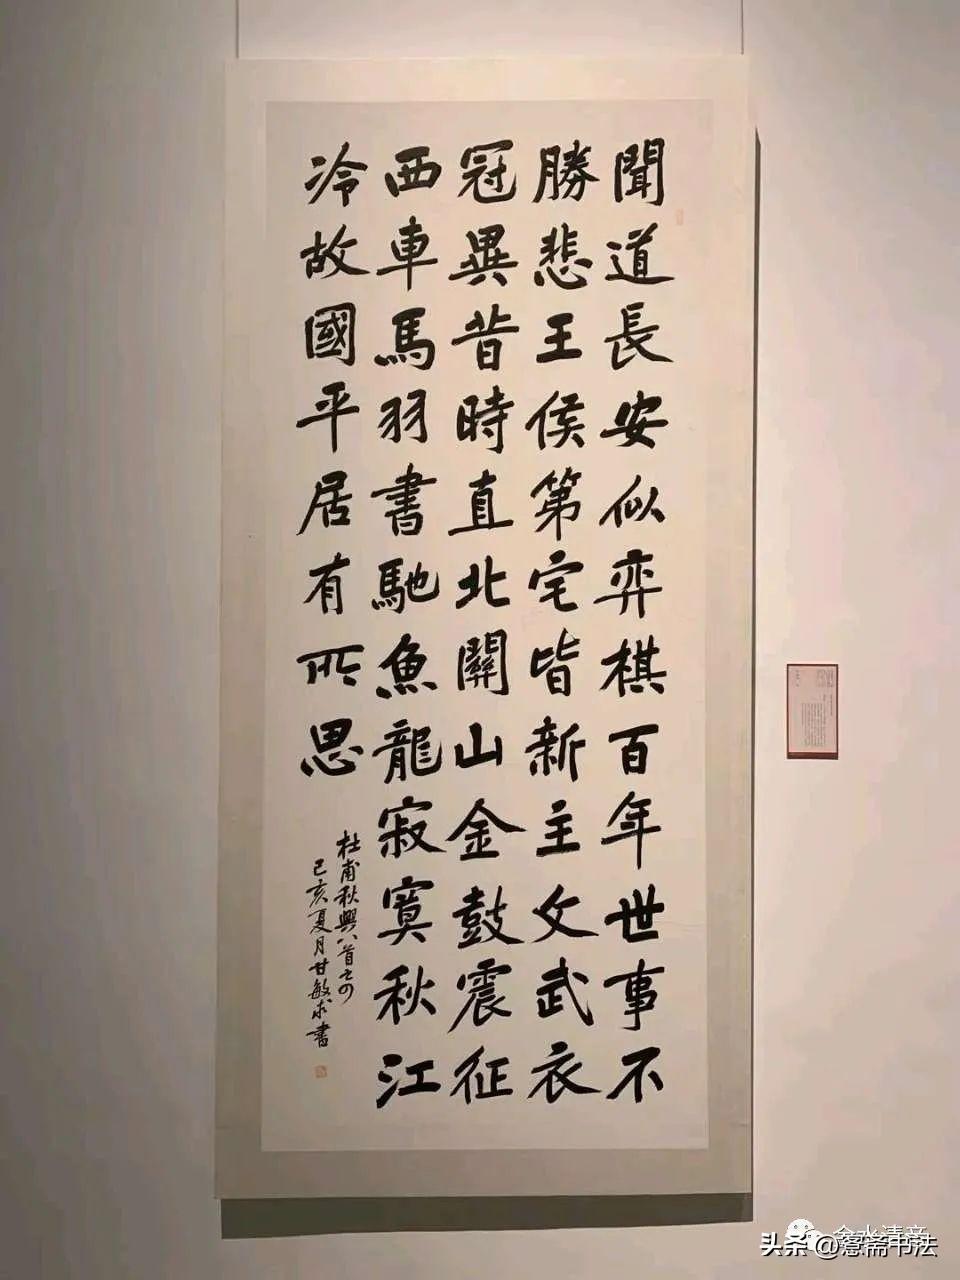 聞道長安似弈棋百年世事不
勝悲王侯第宅皆新主文武衣
冠異昔時直北關山金鼓震征
西車馬羽書馳魚龍寂寞秋江
冷故國平居有所思
杜甫秋興八首之四
己亥夏月甘敏求書
头条@愙斋书法